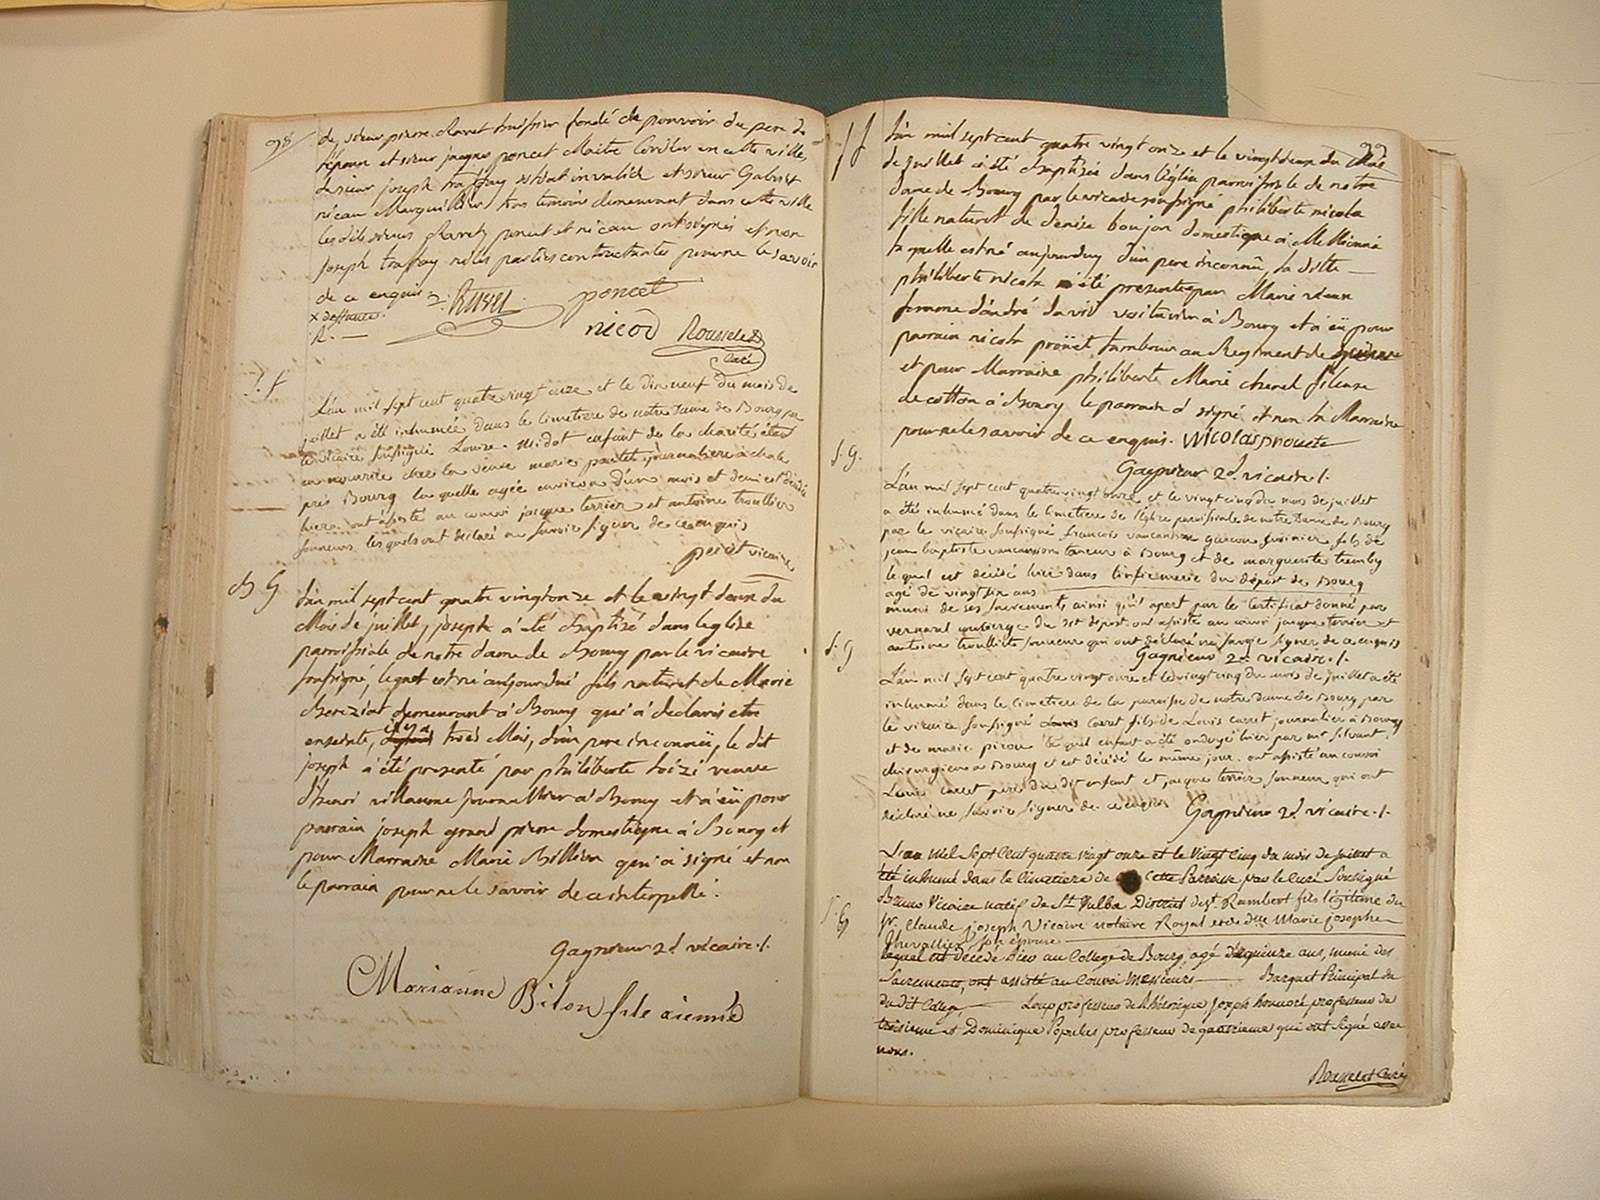 98
de, sieur pierre Ravet huissier fondé de pouvoir du pere de
l'épouse et sieur jaques poncet Maitre Cordier en cette ville,
de sieur joseph traffay soldat invalide et sieur Gabriel
nicau Marguillier tous temoins demeurant dans cette ville
les dits sieurs Ravet, poncet et nicau ont signés et non
joseph traffay ni les parties contractantes pour ne le savoir
de ce enquis
Ravet poncet
R.
nicod Rousselet
Curé
L'an mil sept cent quatre vingt onze et le dix neuf du mois de
juillet a été inhumée dans le cimetiere de notre Dame de Bourg par
le vicaire soussigné Louise midot enfant de la charité étant
en nourrice chez la veuve marie journaliere à
près Bourg la quelle agée environ d'un mois et demi est décédée
hier. ont assisté au convoi jacque terrier et antoine trouilliet
sonneurs lesquels ont déclaré ne savoir signer de ce enquis
vicaire
B G
L'an mil sept cent quatre vingt onze et le vingt deux du
Mois de juillet, joseph à été Baptizé dans l'eglise
parroissiale de notre dame de Bourg par le vicaire
soussigné, lequel est né aujourdui fils naturel de Marie
Bereziat demeurant à Bourg qui à declarés etre
enseinte, il y a trois Mois, d'un pere inconnu, le dit
joseph à été presenté par philiberte veuve
d'henri villaume journallier à Bourg et à eü pour
parrain joseph grand pierre domestique à Bourg et
pour Marraine Marie Billion qui à signé et non
le parrain pour ne le savoir de ce interpellé.
Gagnieur 2d. vicaire./.
Marianne Bilon file ainné
99
L'an mil sept cent quatre vingt onze et le vingt deux du Mois
de juillet à été Baptizée dans l'eglise parroissiale de notre
dame de Bourg par le vicaire soussigné philiberte nicole
fille naturel de denise boujon domestique à
laquelle est né aujourduy d'un pere inconnu, la ditte
philiberte nicole à été presentée par Marie vieux
femme d'andré david voiturier à Bourg et à eü pour
parrain nicolas proüet tambour au Regiment de
et pour Marraine philiberte Marie chanel fileuse
de cotton à Bourg le parrain à signé et non la Marraine
pour ne le savoir de ce enquis. Nicolas prouete
Gagnieur 2d. vicaire./.
S. G.
L'an mil sept cent quatre vingt onze et le vingt cinq du mois de juillet
a été inhumé dans le cimetiere de l'église paroissiale de notre Dame de Bourg
par le vicaire soussigné françois vaucanson garçon cuisinier fils de
jean baptiste vaucanson taneur à Bourg et de marguerite trembly
le quel est décédé hier dans l'infirmerie du dépost de Bourg
agé de vingt six ans
muni de ses sacrements ainsi qu'il apert par le certificat donné par
vernarel concierge du dit dépost. ont assisté au convoi jacque terrier et
antoine trouilliet sonneurs qui ont déclaré ne savoir signer de ce enquis
Gagnieur 2d. vicaire./.
S. G
L'an mil sept cent quatre vingt onze et le vingt cinq du mois de juillet a été
inhumé dans le cimetiere de la paroisse de notre Dame de Bourg par
le vicaire soussigné Louis carret fils de Louis carret journalier à Bourg
et de marie pirou le quel enfant a été ondoyé hier par mr silvant
chirurgien à Bourg et est décédé le même jour. ont assisté au convoi
Louis carret pere du dit enfant et jacque terrier sonneur qui ont
déclaré ne savoir signer de ce enquis
Gagnieur 2d. vicaire./.
S. G
L'an mil Sept Cent quatre vingt onze et le Vingt Cinq du mois de juillet a
été inhumé dans le Cimetiere de cette Parroisse par le Curé Soussigné
Bruno Vicaire natif de St Vulba District de St. Rambert fils légitime de
Sr. Claude joseph Vicaire notaire Royal et de Dlle Marie josephe
Chevallier son épouse
lequel est décédé hier au College de Bourg, agé de quinze ans, muni des
Sacrements, ont assisté au Convoi Messieurs Barquet Principal du
du dit College, Loup professeur de Rhétorique Joseph honnoré professeur de
troisieme et Dominique Populus professeur de quatrieme qui ont signé avec
nous.
Rousselet Curé